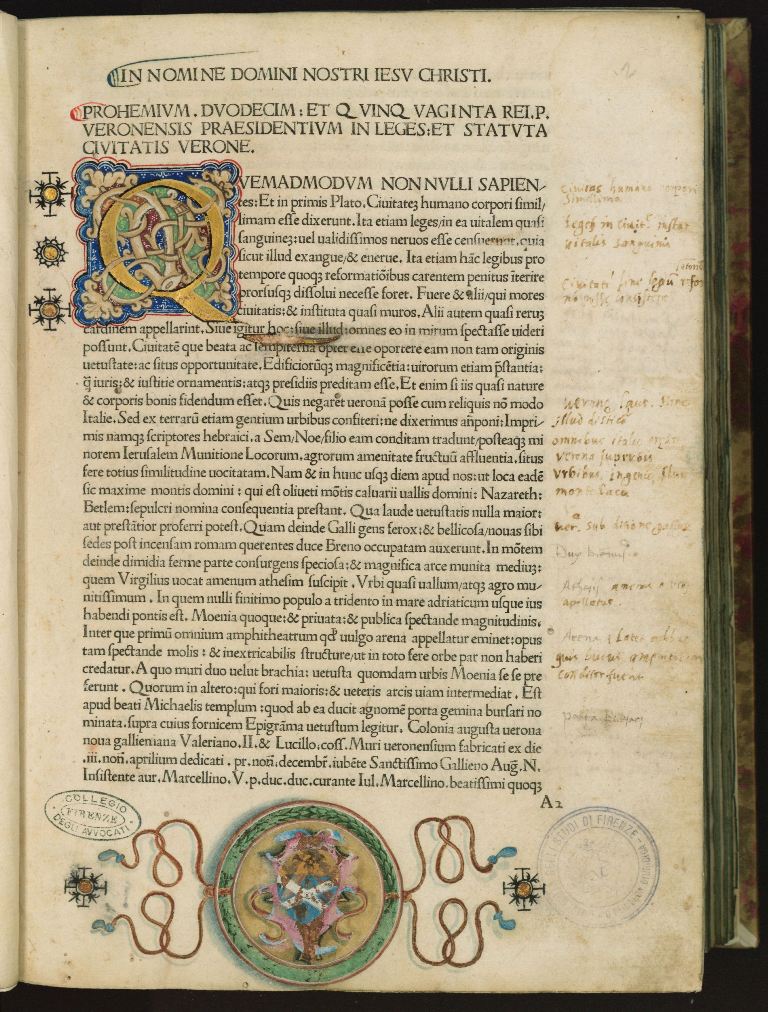 IN NOMINE DOMINI NOSTRI IESV CHRISTI.
PROHEMIVM. DVODECIM: ET Q VINQ VAGINTA REI.P.
VERONENSIS PRAESIDENTIVM IN LEGES: ET STATVTA
CIVITATIS VERONE.
QVEMADMODVM NON NVLLI SAPIEN/
tes: Et in primis Plato. Ciuitatez humano corpori simil/
limam esse dixerunt. Ita etiam leges/in ea uitalem quasi
sanguinez: uel ualidissimos neruos esse censuerunt. quia
sicut illud exangue/& enerue. Ita etiam hãc legibus pro
tempore quoqz reformatiõibus carentem penitus iterire
prorsusqz dissolui necesse foret. Fuere & alii/qui mores
ciuitatis: & instituta quasi muros. Alii autem quasi reruz
cardinem appellarint. Siue igitur hoc: siue illud: omnes eo in mirum spectasse uideri
possunt. Ciuitatẽ que beata ac sempiterna oportere eam non tam originis
uetustate: ac situs opportunitate. Edificiorũqz magnificẽtia: uirorum etiam p̃stantia:
q̃ iuris: & iustitie ornamentis: atqz presidiis preditam esse. Et enim si iis quasi nature
& corporis bonis fidendum esset. Quis negaret ueronã posse cum reliquis nõ modo
Italie. Sed ex terrarũ etiam gentium urbibus confiteri: ne dixerimus anponi: Impri/
mis namqz scriptores hebraici. a Sem/Noe/filio eam conditam tradunt/posteaqz mi
norem Ierusalem Munitione Locorum. agrorum amenitate fructuũ affluentia. situs
fere totius similitudine uocitatam. Nam & in hunc usqz diem apud nos: ut loca eadẽ
sic maxime montis domini: qui est oliueti mõtis caluarii uallis domini: Nazareth:
Betlem: sepulcri nomina consequentia prestant. Qua laude uetustatis nulla maior:
aut prestãtior proferri potest. Quam deinde Galli gens ferox: & bellicosa/nouas sibi
sedes post incensam romam querentes duce Breno occupatam auxerunt. In mõtem
deinde dimidia ferme parte consurgens speciosa: & magnifica arce munita mediuz:
quem Virgilius uocat amenum athesim suscipit. Vrbi quasi uallum/atqz agro mu/
nitissimum. In quem nulli finitimo populo a tridento in mare adriaticum usque ius
habendi pontis est. Moenia quoque: & priuata: & publica spectande magnitudinis.
Inter que primũ omnium amphitheatrum qd̓ uulgo arena appellatur eminet: opus
tam spectande molis: & inextricabilis structure/ut in toto fere orbe par non haberi
credatur. A quo muri duo uelut brachia: uetusta quomdam urbis Moenia se se pre
ferunt. Quorum in altero: qui fori maioris: & ueteris arcis uiam intermediat. Est
apud beati Michaelis templum: quod ab ea ducit agnomẽ porta gemina bursari no
minata. supra cuius fornicem Epigrãma uetustum legitur. Colonia augusta uerona
noua gallieniana Valeriano. II. & Lucillo: coss. Muri ueronensium fabricati ex die
.iii. noñ. aprilium dedicati. pr. noñ: decembr̃. iubẽte Sanctissimo Gallieno Aug̃. N.
Insistente aur. Marcellino. V.p. duc. duc. curante Iul. Marcellino. beatissimi quoqz
A2
COLLEGIO
FIRENZE
DEGLI AVVOCATI
STUDI DI FIRENZE